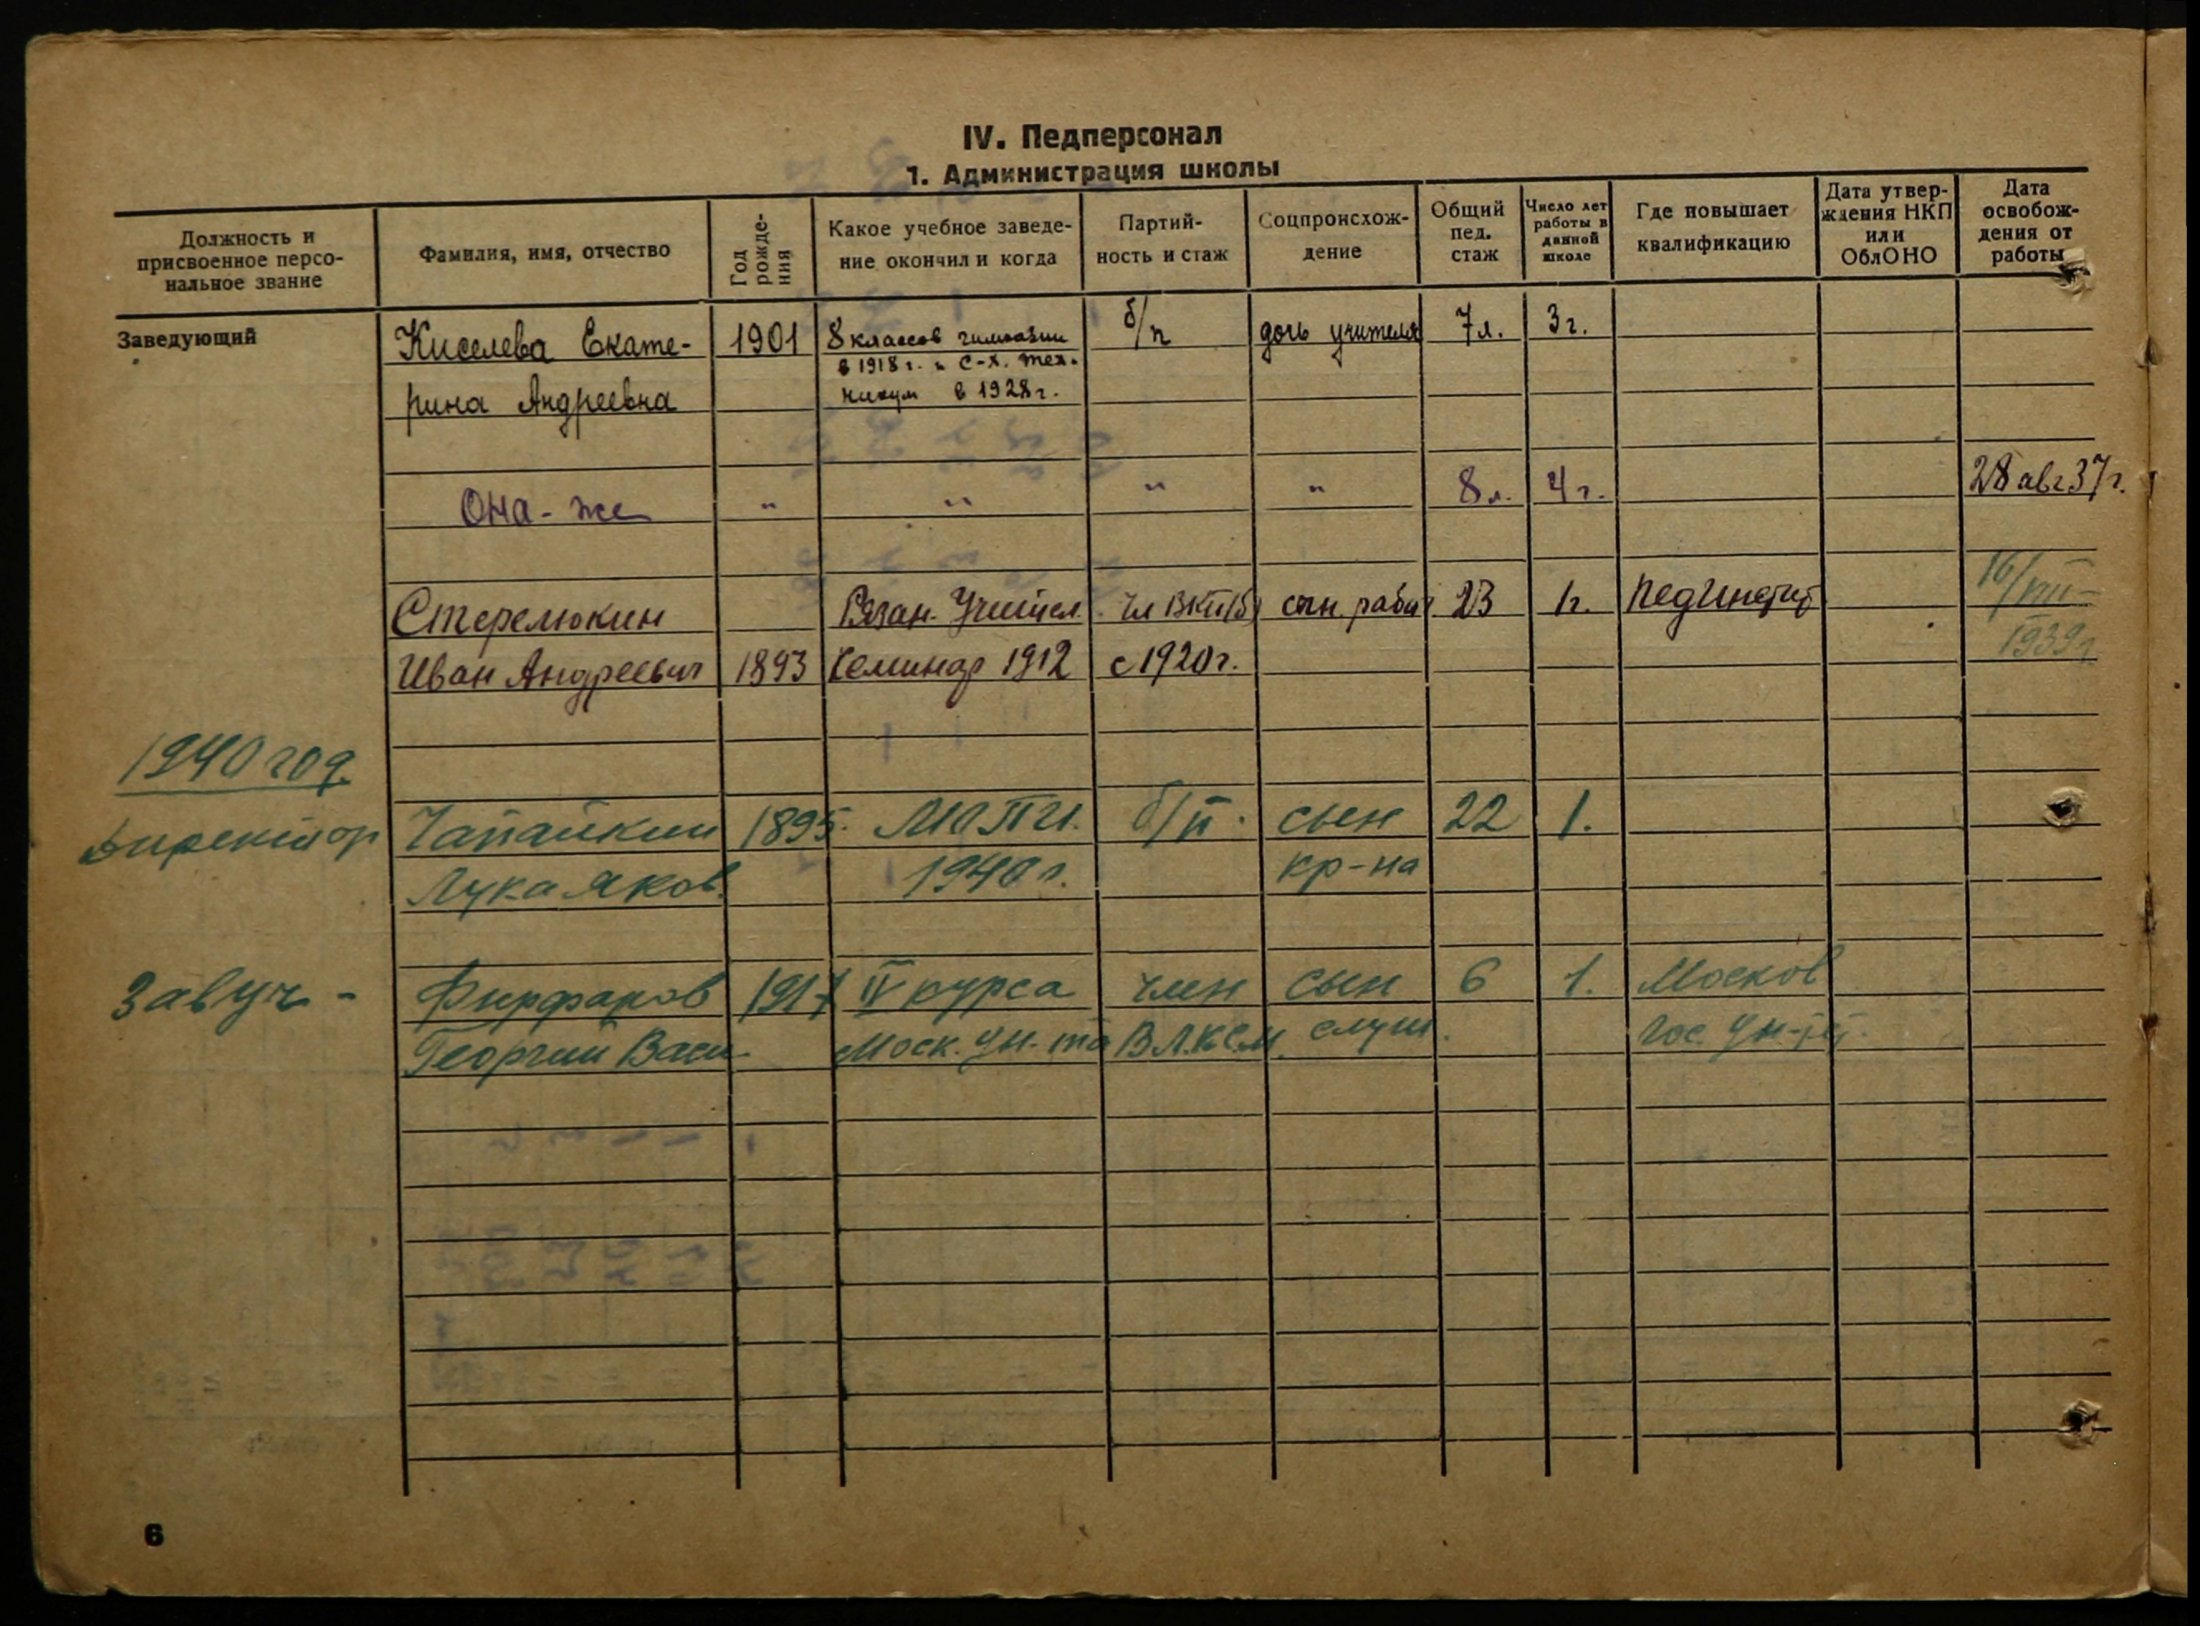 IV. Педперсонал
1. Администрация школы
Должность и присвоенное персональное звание | Фамилия, имя, отчество | Год рождения | Какое учебное заведение окончил и когда | Партийность и стаж | Соцпроисхождение | Общий пед. стаж | Число лет работы в данной школе | Где повышает квалификацию | Дата утверждения НКП или ОблОНО | Дата освобождения от работы
Заведующий | Киселева Екате- | 1901 | 8 классов гимназии | б/п | дочь учителя | 7 л. | 3 г.
в 1918 г. и с-х. тех-
рина Андреевна | никум в 1928 г.
Она-же | " | " | " | " | 8 л. | 4 г. | 28 авг 37 г.
Стерелюкин | Рязан. Учител. | чл ВКП(б) | сын рабоч | 23 | 1 г. | Пединстит | 16/VIII-
Иван Андреевич | 1893 | Семинар 1912 | с 1920 г. | 1939 г
1940 год
Директор | Чапайкин | 1895. | МОПИ. | б/п. | сын | 22 | 1.
Лука Яков. | 1940 г. | кр-на
Завуч - | Фирфаров | 1917 | IV курса | член | сын | 6 | 1. | Москов
Георгий Васи. | Моск. Ун-та | ВЛКСМ. | служ. | гос. Ун-тет.
6